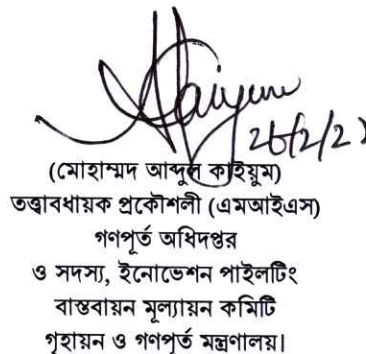 (মোহাম্মদ আব্দুল কাইয়ুম)
তত্ত্বাবধায়ক প্রকৌশলী (এমআইএস)
গণপূর্ত অধিদপ্তর
ও সদস্য, ইনোভেশন পাইলটিং
বাস্তবায়ন মূল্যায়ন কমিটি
গৃহায়ন ও গণপূর্ত মন্ত্রণালয়।